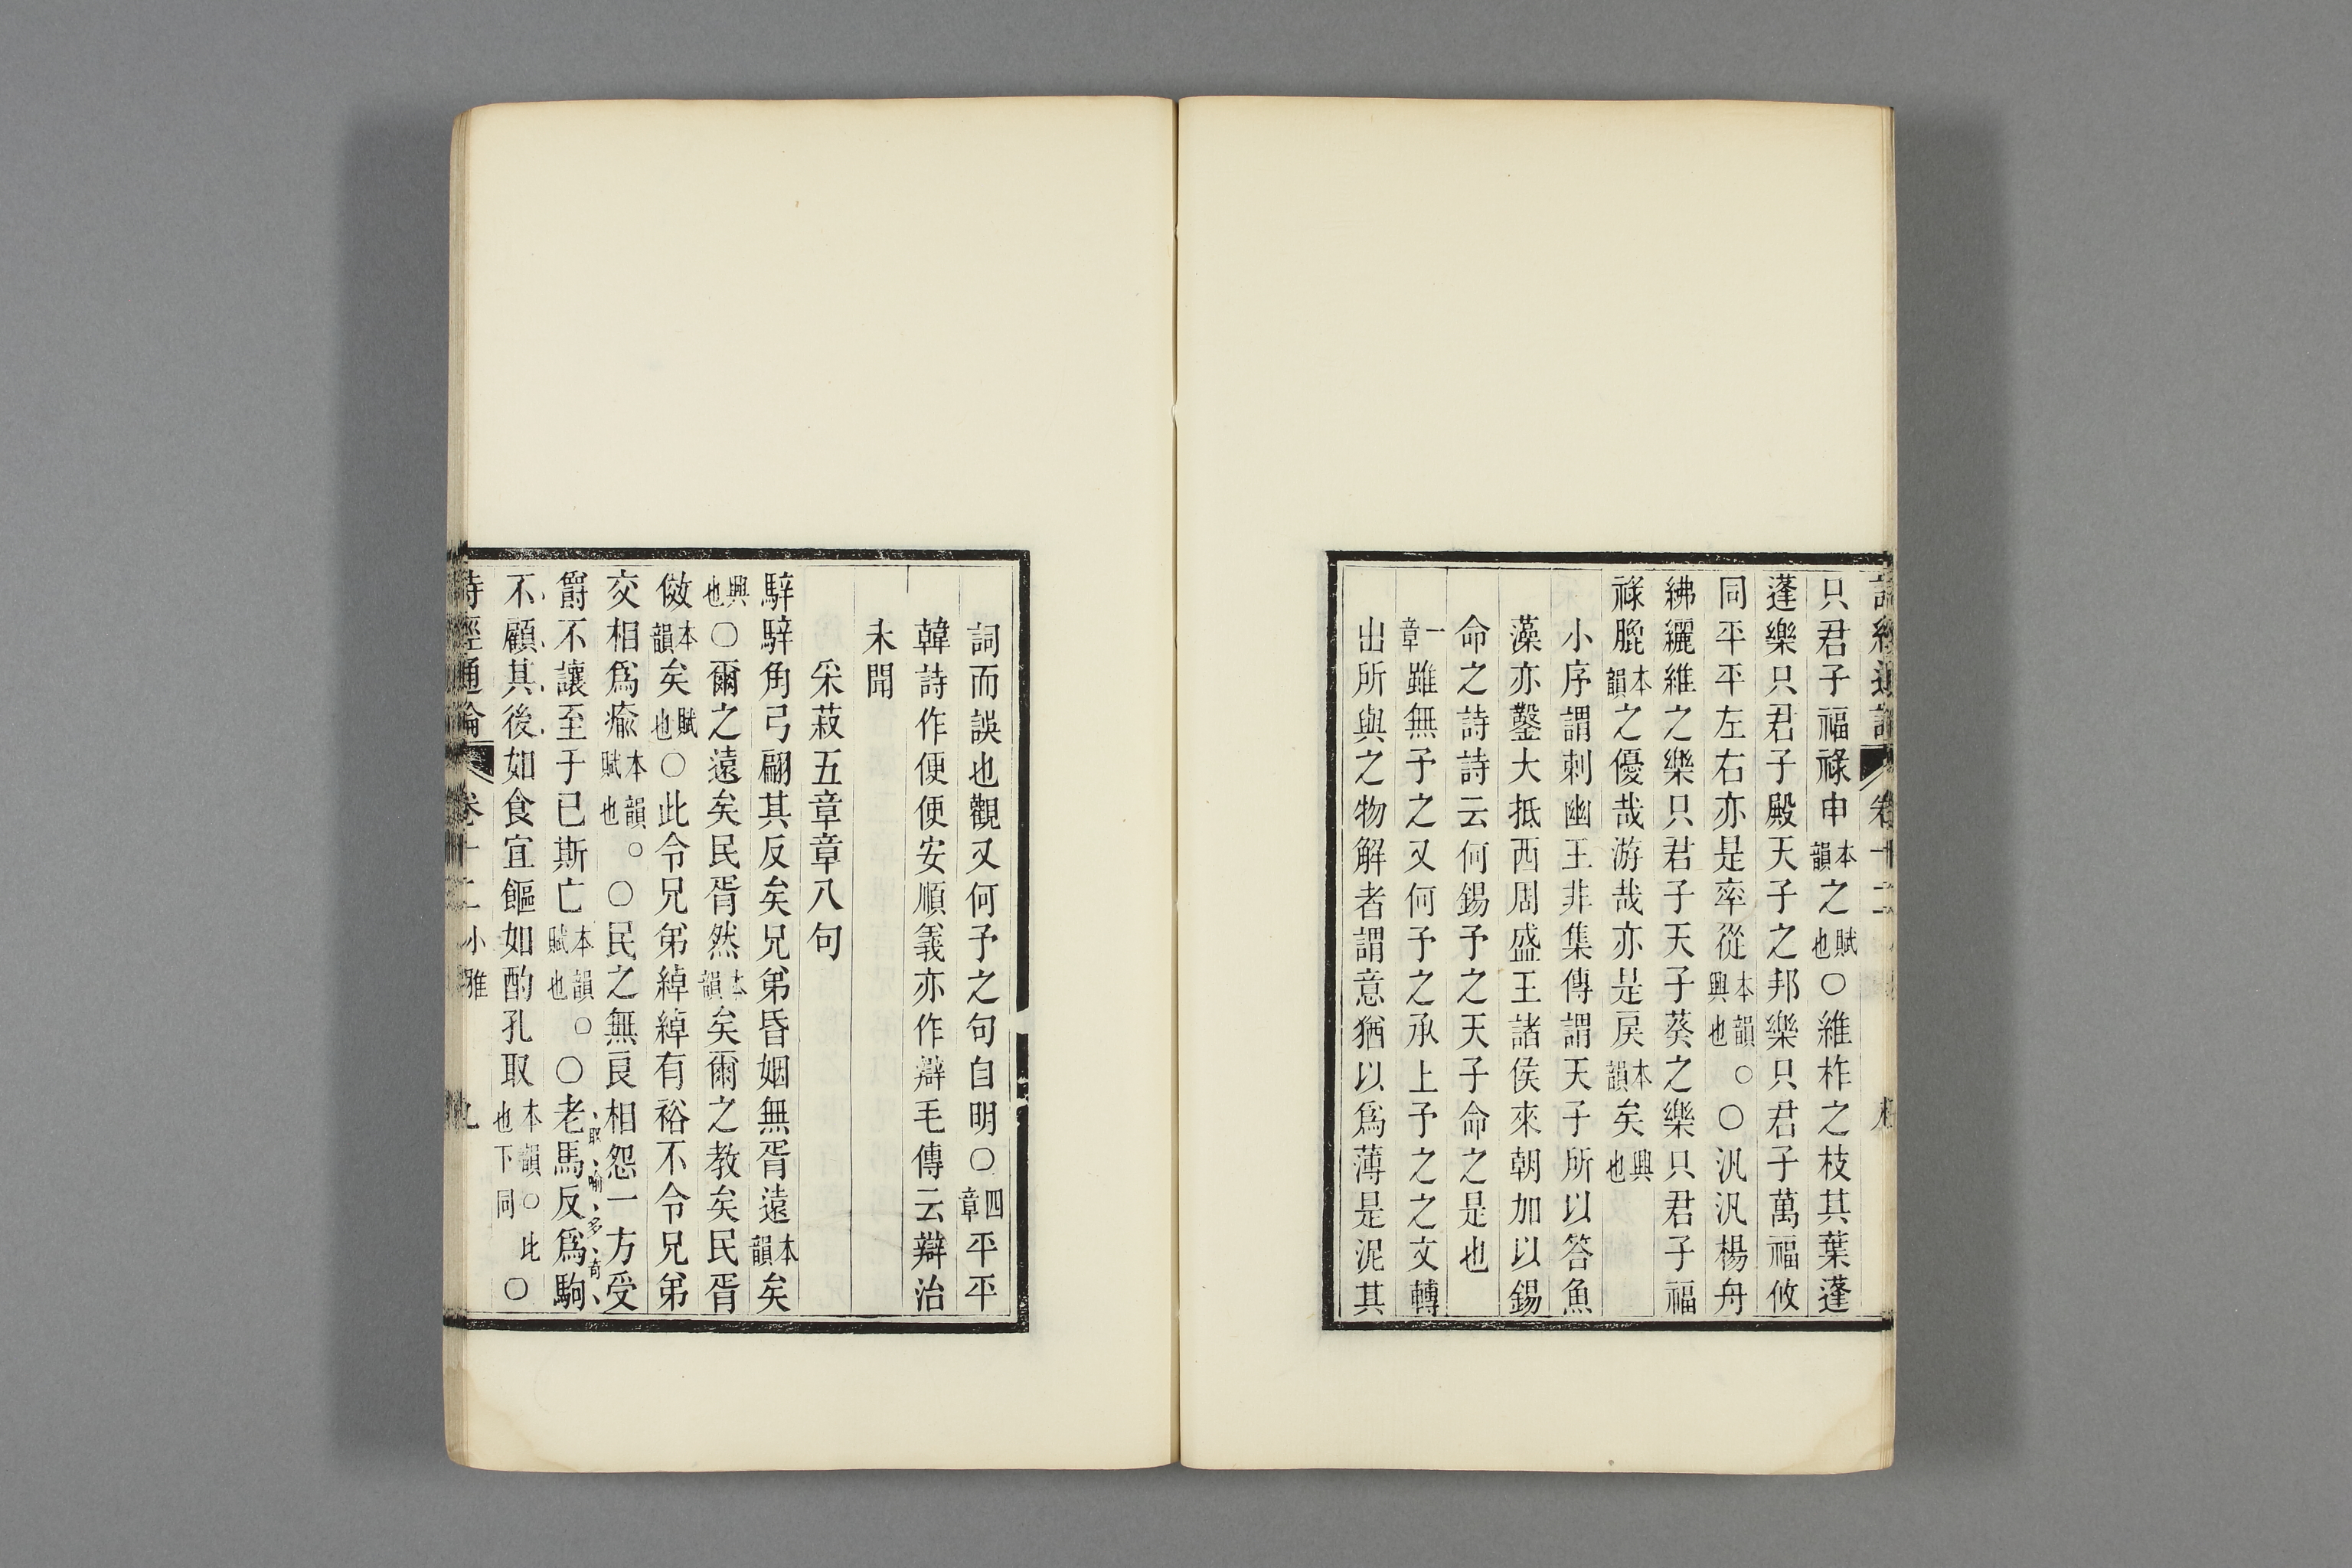 只君子福祿申本韻之賦也〇維柞之枝其葉蓬
蓬樂只君子殿天子之邦樂只君子萬福攸
同平平左右亦是率從本韻○興也〇汎汎楊舟
紼纚維之樂只君子天子葵之樂只君子福
祿膍本韻之優哉游哉亦是戾本韻矣興也
小序謂刺幽王非集傳謂天子所以答魚
藻亦鑿大抵西周盛王諸侯來朝加以錫
命之詩詩云何錫予之天子命之是也
一章雖無予之又何予之承上予之之文轉
出所與之物解者謂意猶以爲薄是泥其
詞而誤也觀又何予之句自明〇四章平平
韓詩作便便安順義亦作辯毛傳云辯治
未聞
采菽五章章八句
騂騂角弓翩其反矣兄弟昏姻無胥遠本韻矣
興也〇爾之遠矣民胥然本韻矣爾之教矣民胥
傚本韻矣賦也〇此令兄弟綽綽有裕不令兄弟
交相爲瘉本韻○賦也〇民之無良相怨一方受
爵不讓至于已斯亡本韻○賦也〇老馬反爲駒
取喻多奇
不顧其後如食宜饇如酌孔取本韻○比也下同〇
詩經通論 卷十二 小雅 九